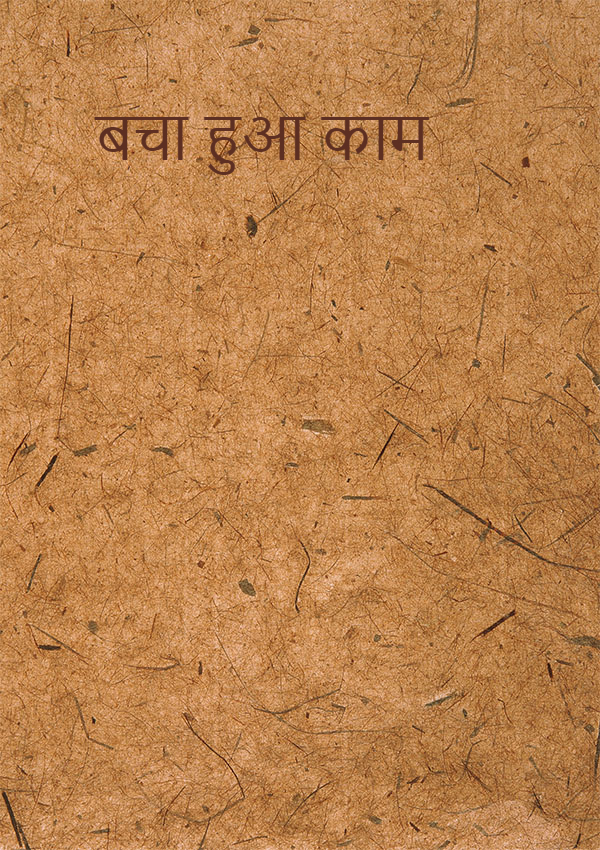 बचा हुआ काम